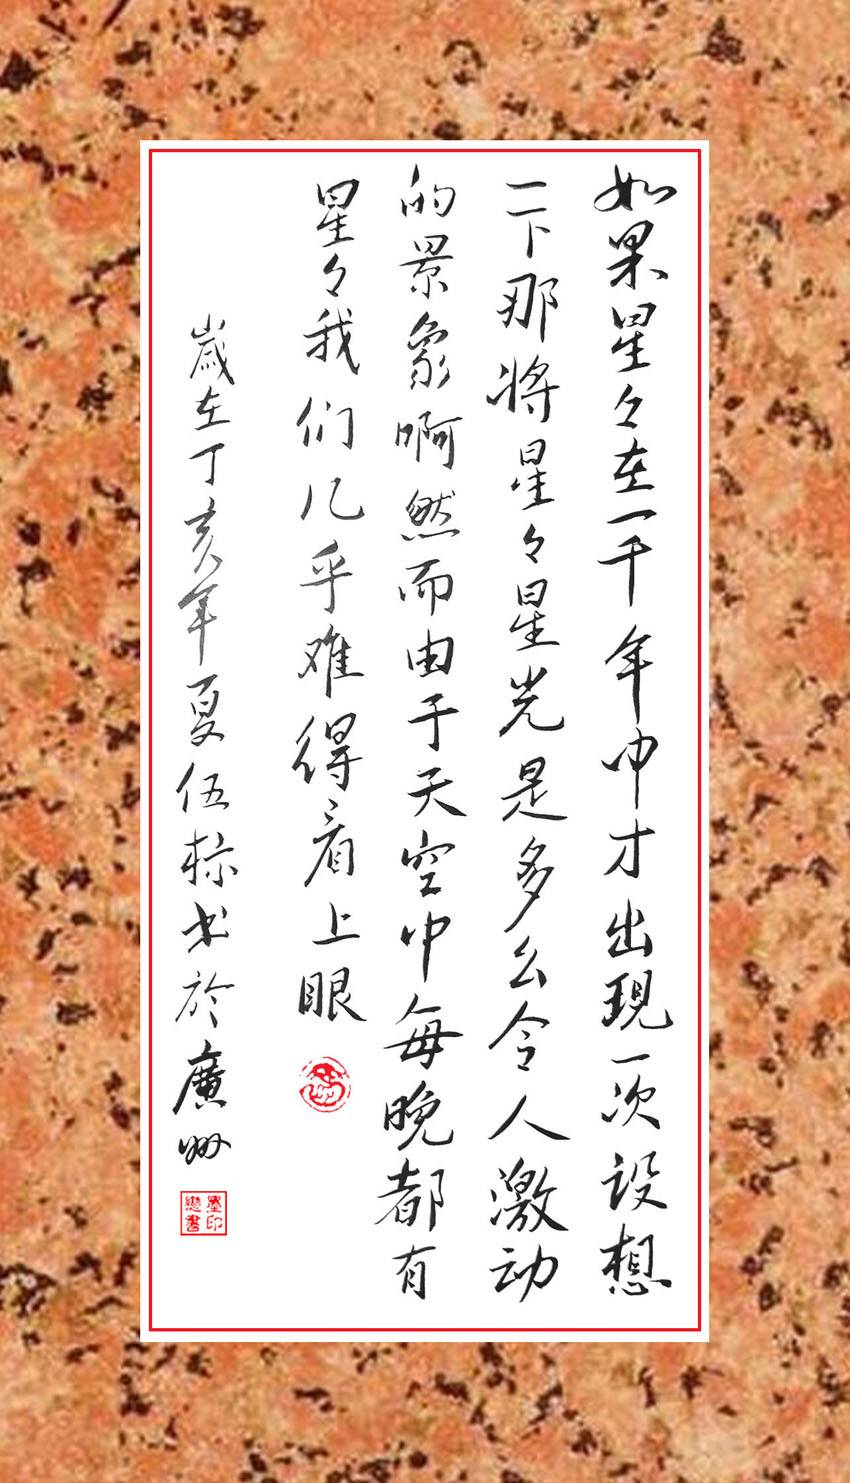 如果星々在一千年中才出現一次设想
一下那将星々星光是多么令人激动
的景象啊然而由于天空中每晚都有
星々我们几乎难得看上眼
歲在丁亥年夏伍标书於廣州
墨印
戀書